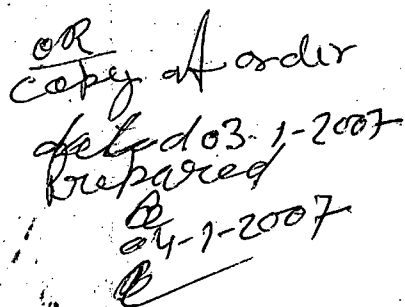 OR
copy of order
dated 03-1-2007
Prepared
04-1-2007